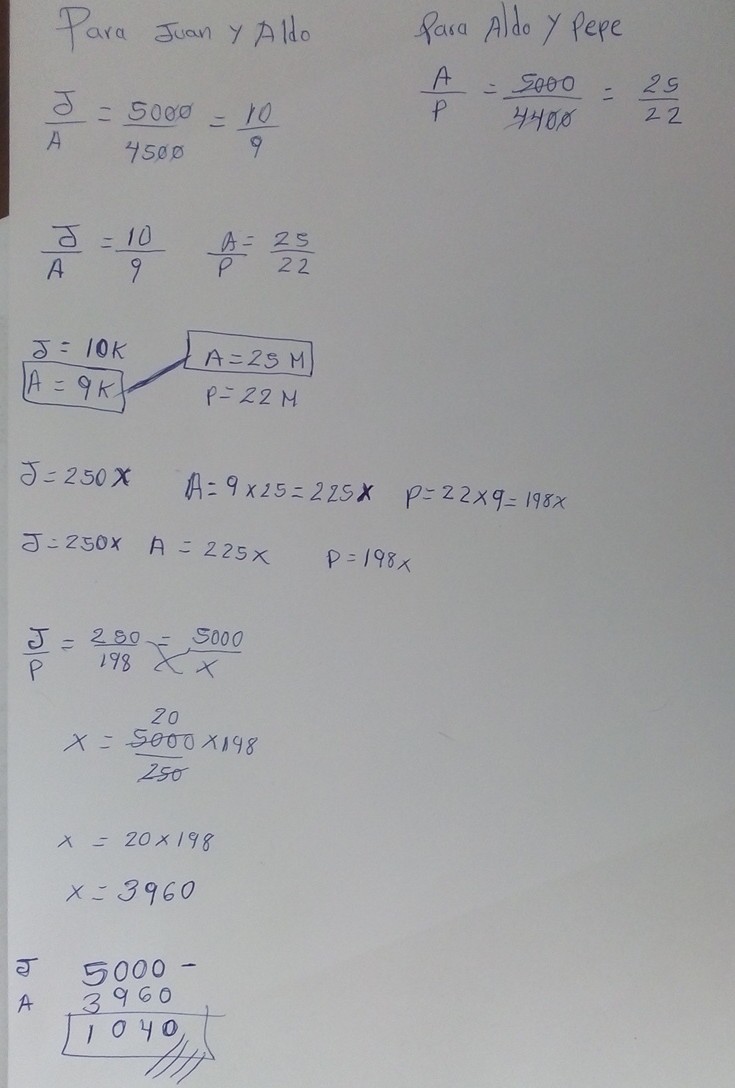 Para Juan y Aldo
Para Aldo y Pepe
J/A = 5000/4500 = 10/9
A/P = 5000/4400 = 25/22
J/A = 10/9
A/P = 25/22
J = 10K
A = 9K
A = 25 M
P = 22 M
J = 250x
A = 9 x 25 = 225x
P = 22 x 9 = 198x
J = 250x
A = 225x
P = 198x
J/P = 250/198 = 5000/x
20
x = 5000 x 198/250
x = 20 x 198
x = 3960
J 5000 -
A 3960
1040